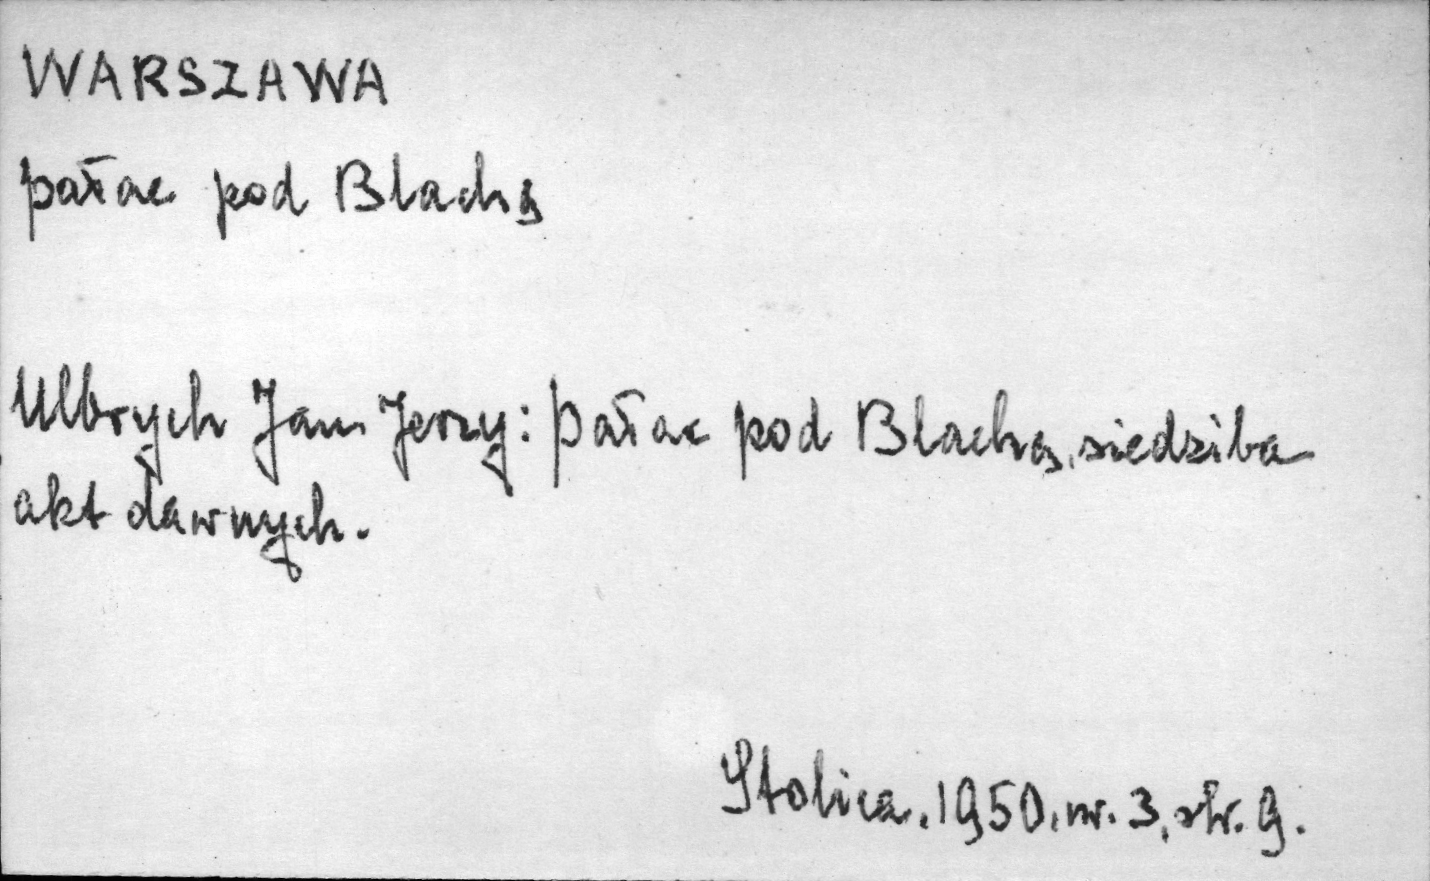 WARSZAWA
pałac pod Blachą
Ulbrych Jan Jerzy: Pałac pod Blachą, siedziba
akt dawnych.
Stolica, 1950, nr. 3, str. 9.